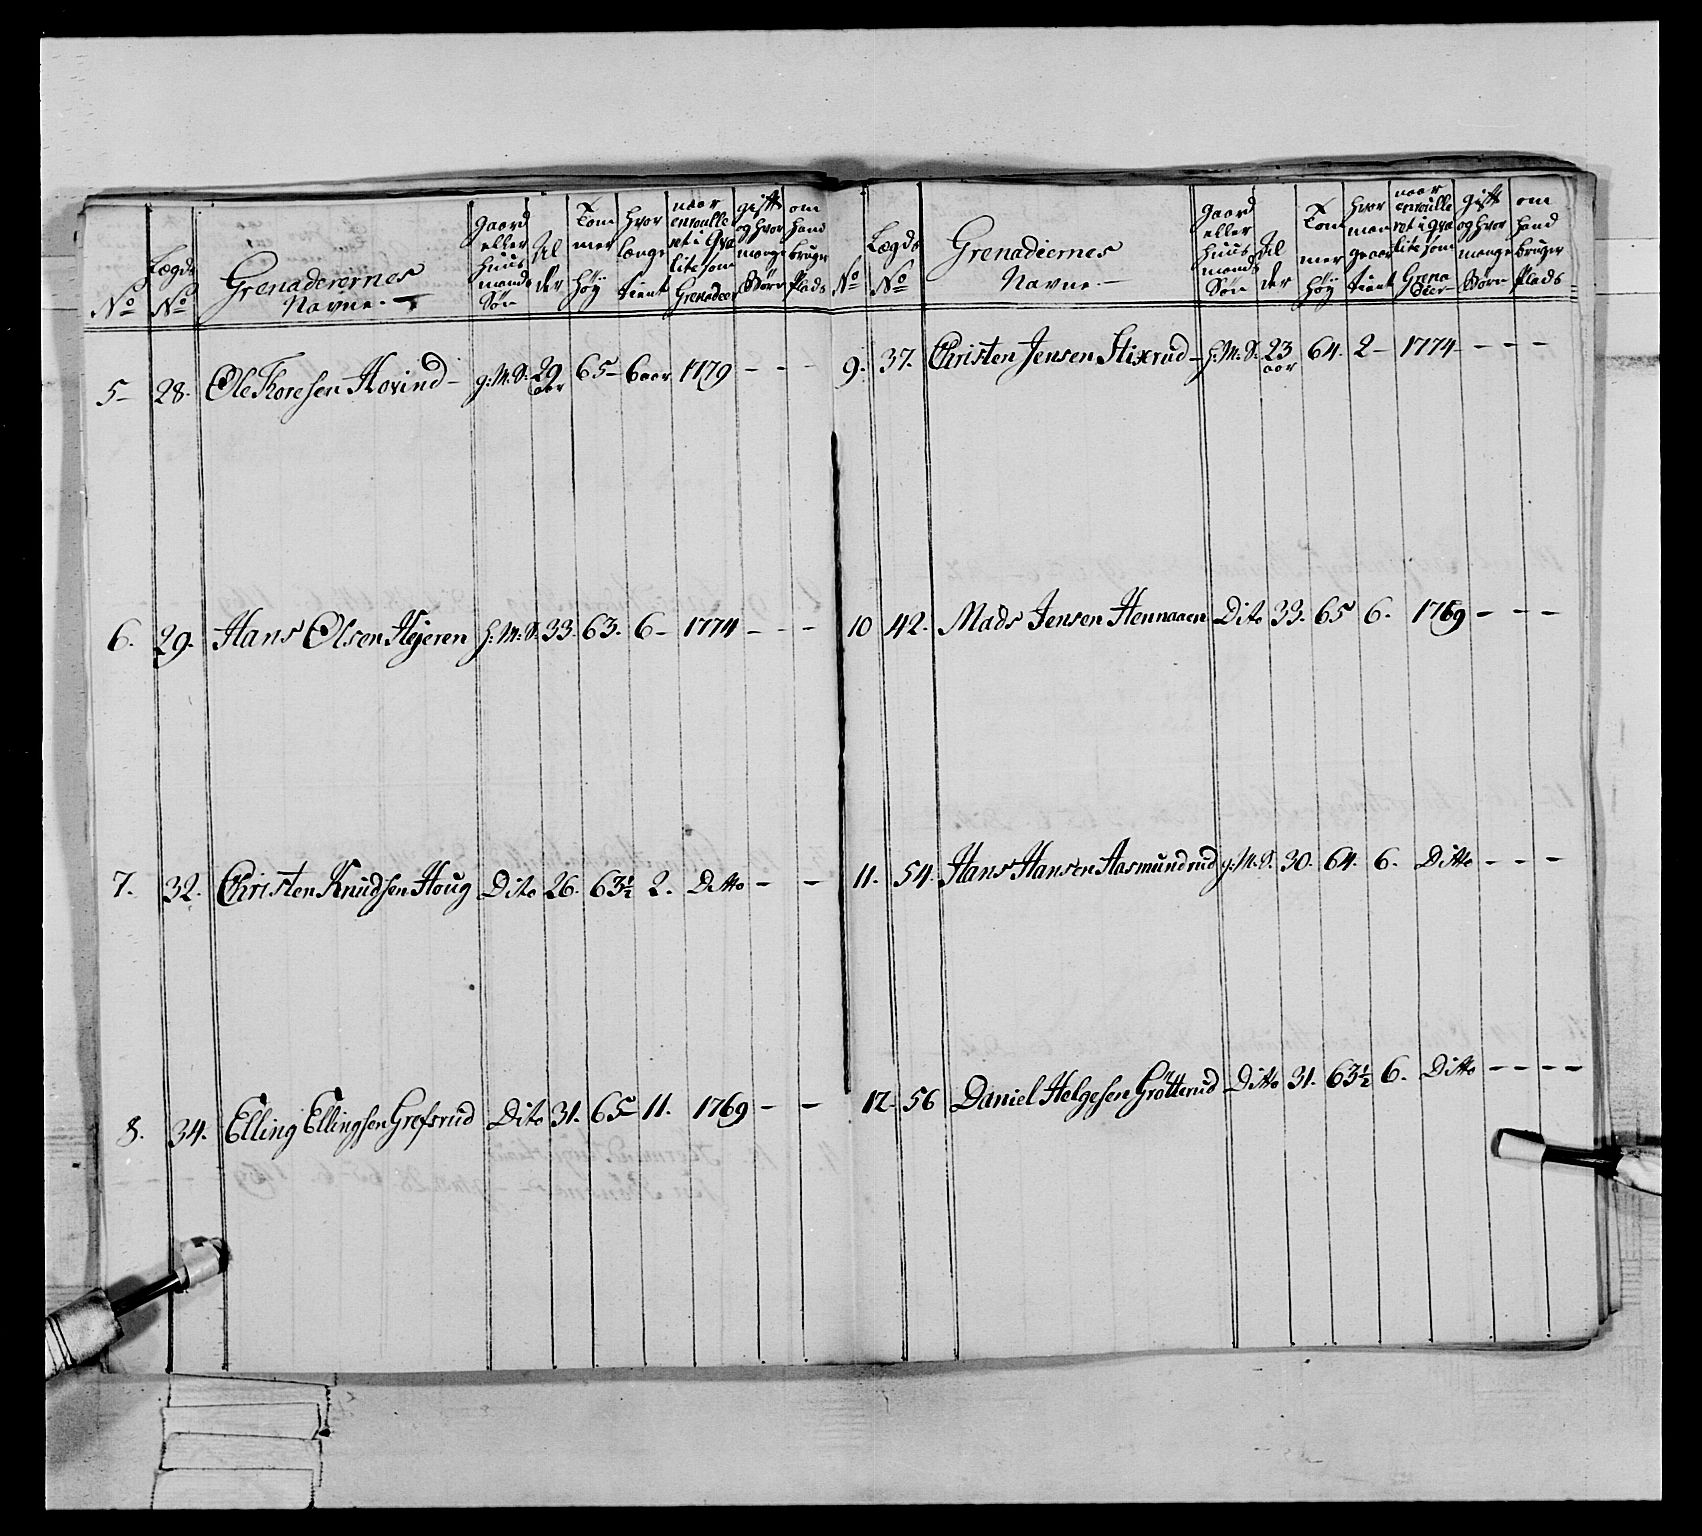 No
Lægds No
Grenaderernes Navne.
gaard eller huus mands Søn
Al der
Tom mer høy
hvor længe tient
naar enroulle ret i Qva lite som Grenadeer
gift og hvor mange Børn
om hand bruger Plads
5 28. Ole Thoresen Hovind g: M: S: 29 aar 65 6 aar 1779 - - -
6. 29. Hans Olsen Hejeren h: M: S: 33. 63. 6 1774 - - -
7. 32. Christen Knudsen Houg Dito 26. 63½ 2. Ditto - -
8. 34. Elling Ellingsen Grefsrud Dito 31. 65 11. 1769 - -
No
Lægds No
Grenadeernes Navne.
gaard eller huus mands Søn
Al der
Tom mer høy
hvor mange aar tient
naar enroulle ret i Qva lite som Grena deer
gift og hvor mange Børn
om hand bruger Plads
9. 37. Christen Jensen Stixrud h: M: S: 23 aar 64. 2 1774 - - -
10 42. Mads Jensen Hennaaen Dito 33. 65 6. 1769 - - -
11. 54. Hans Hansen Aasmundrud g: M: S. 30. 64. 6. Ditto - - -
12 56 Daniel Helgesen Grøtterud Ditto 31. 63½ 6. Ditto - - - -